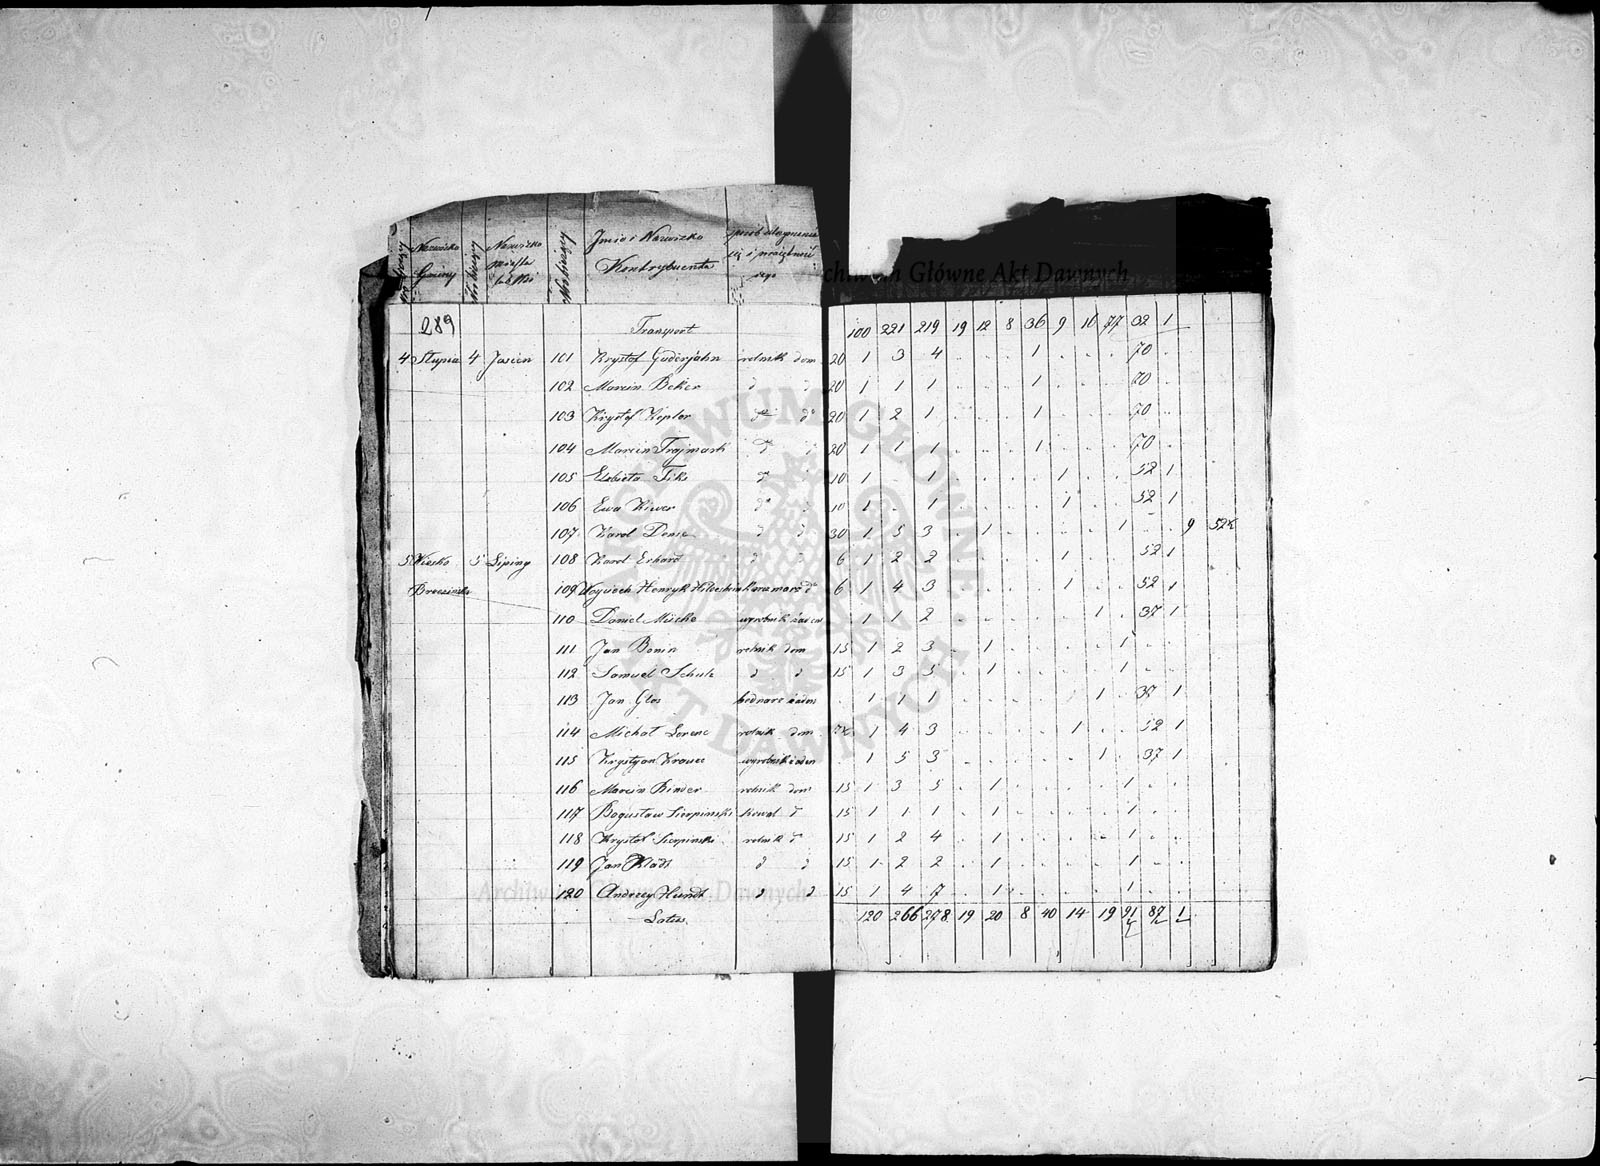 Nazwisko Gminy Nazwisko miasta lub Wsi Imie i Nazwisko Kontrybuenta sposób utrzymania się i
289 Transport 100 221 219 19 12 8 36 9 16 77 32 1
4 Słupia 4 Jasien 101 Krystof Guderjahn rolnik dom 20 1 3 4 . . . 1 . . . 70 .
102 Marcin Beker d d 20 1 1 1 . . . 1 . . . 70 .
103 Krystof Kepler do do 20 1 2 1 . . . 1 . . . 70 .
104 Marcin Trajmark d d 20 1 1 1 . . . 1 . . . 70 .
105 Elzbieta Tiks d 10 1 . 1 . . . . 1 . . 52 1
106 Ewa Kiwer do d 10 1 . 1 . . . . 1 . . 52 1
107 Karol Denie d d 30 1 5 3 . 1 . . . . 1 . . 9
5 Wiesko Brzezinski 5 Lipiny 108 Karol Erhard d d 6 1 2 2 . . . . 1 . . 52 1
109 Woyciech Henryk karczmarz do 6 1 4 3 . . . . 1 . . 52 1
110 Daniel Mische wyrobnik żaden . 1 1 2 . . . . . 1 . 37 1
111 Jan Bonin rolnik dom 15 1 2 3 . 1 . . . . 1 . .
112 Samuel Schulz d d 15 1 3 5 . 1 . . . . 1 . .
113 Jan Glos bednarz żaden . 1 1 1 . . . . . 1 . 37 1
114 Michał Lorenc rolnik dom 1 4 3 . . . . 1 . . 52 1
115 Krystyan Krauze wyrobnik żaden . 1 5 3 . . . . . 1 . 37 1
116 Marcin Binder rolnik dom 15 1 3 5 . 1 . . . . 1 . .
117 Bogusław Sierpinski kowal d 15 1 1 1 . 1 . . . . 1 . .
118 Krystof Sierpinski rolnik d 15 1 2 4 . 1 . . . . 1 . .
119 Jan Klads d d 15 1 2 2 . 1 . . . . 1 . .
120 Andrzey Hundt d d 15 1 4 7 . 1 . . . . 1 . .
Latus 120 266 278 19 20 8 40 14 19 91 87 1
Archiwum Główne Akt Dawnych
Archiwum Główne Akt Dawnych
ARCHIWUM GŁÓWNE AKT DAWNYCH